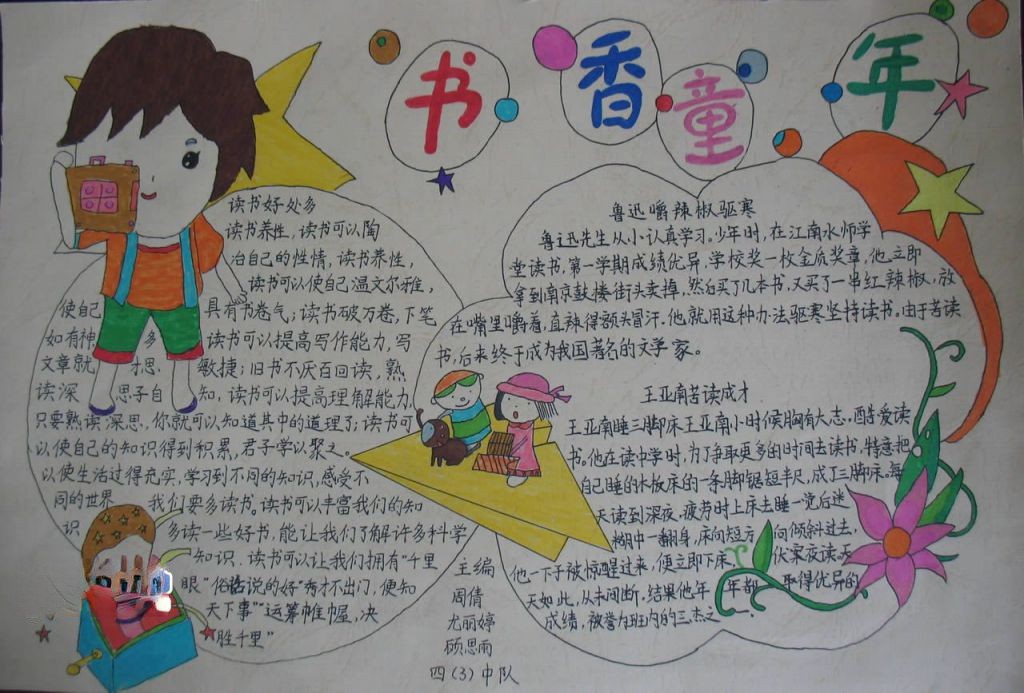 书香童年
读书好处多
读书养性，读书可以陶
冶自己的性情，读书养性，
读书可以使自己温文尔雅，
使自己 具有书卷气；读书破万卷，下笔
如有神 多 读书可以提高写作能力，写
文章就 才思 敏捷；旧书不厌百回读，熟
读深 思子自 知，读书可以提高理解能力，
只要熟读深思，你就可以知道其中的道理了；读书可
以使自己的知识得到积累，君子学以聚之。
以使生活过得充实，学习到不同的知识，感受不
同的世界 我们要多读书。读书可以丰富我们的知
识 多读一些好书，能让我们了解许多科学
知识．读书可以让我们拥有“千里
眼”俗话说的好“秀才不出门，便知
天下事”“运筹帷幄，决
胜千里”
鲁迅嚼辣椒驱寒
鲁迅先生从小认真学习。少年时，在江南水师学
堂读书，第一学期成绩优异，学校奖一枚金质奖章，他立即
拿到南京鼓楼街头卖掉，然后买了几本书，又买了一串红辣椒，放
在嘴里嚼着，直辣得额头冒汗。他就用这种办法驱寒坚持读书。由于苦读
书，后来终于成为我国著名的文学家。
王亚南苦读成才
王亚南睡三脚床王亚南小时候胸有大志，酷爱读
书。他在读中学时，为了争取更多的时间去读书，特意把
自己睡的木板床的一条脚锯短半尺，成了三脚床。每
天读到深夜，疲劳时上床去睡一觉后迷
糊中一翻身，床向短方 向倾斜过去，
他一下子被惊醒过来，便立即下床， 伏案夜读。天
天如此，从未间断，结果他年 年都 取得优异的
成绩，被誉为班内的三杰之一．
主编
周倩
尤丽婷
顾思雨
四（3）中队